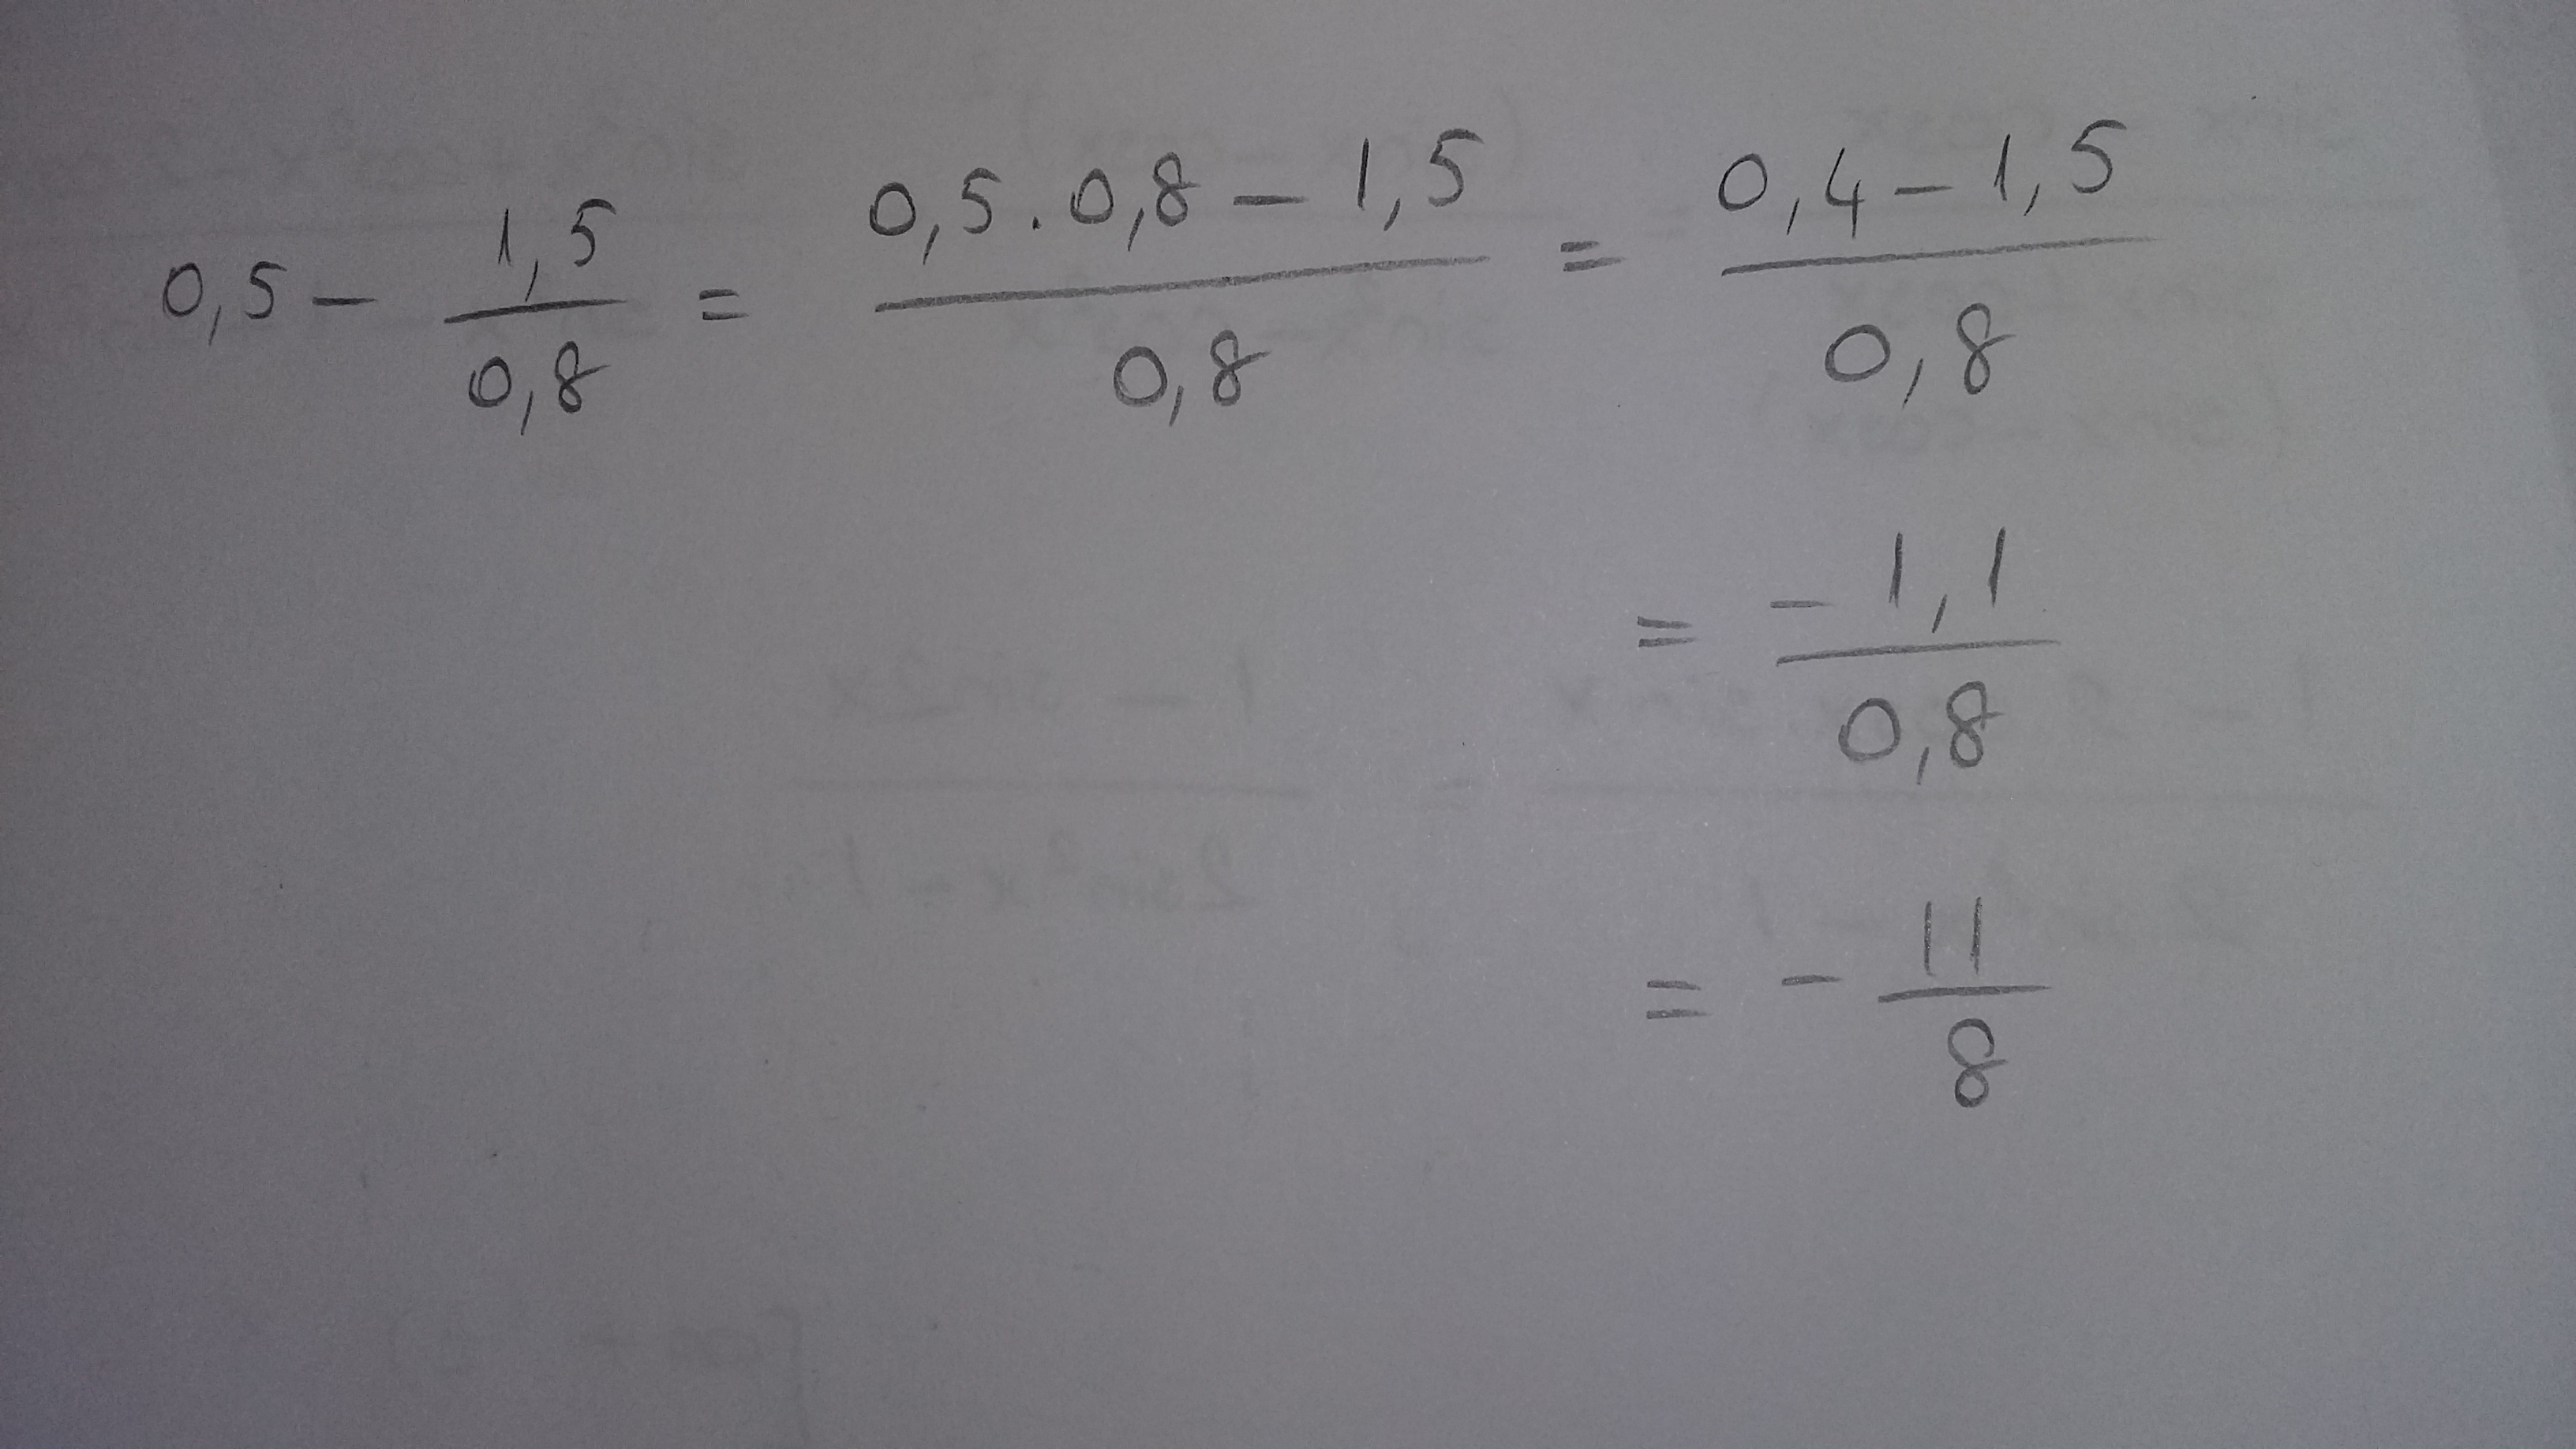 0,5 - 1,5/0,8 = (0,5 . 0,8 - 1,5)/0,8 = (0,4 - 1,5)/0,8
= -1,1/0,8
= - 11/8